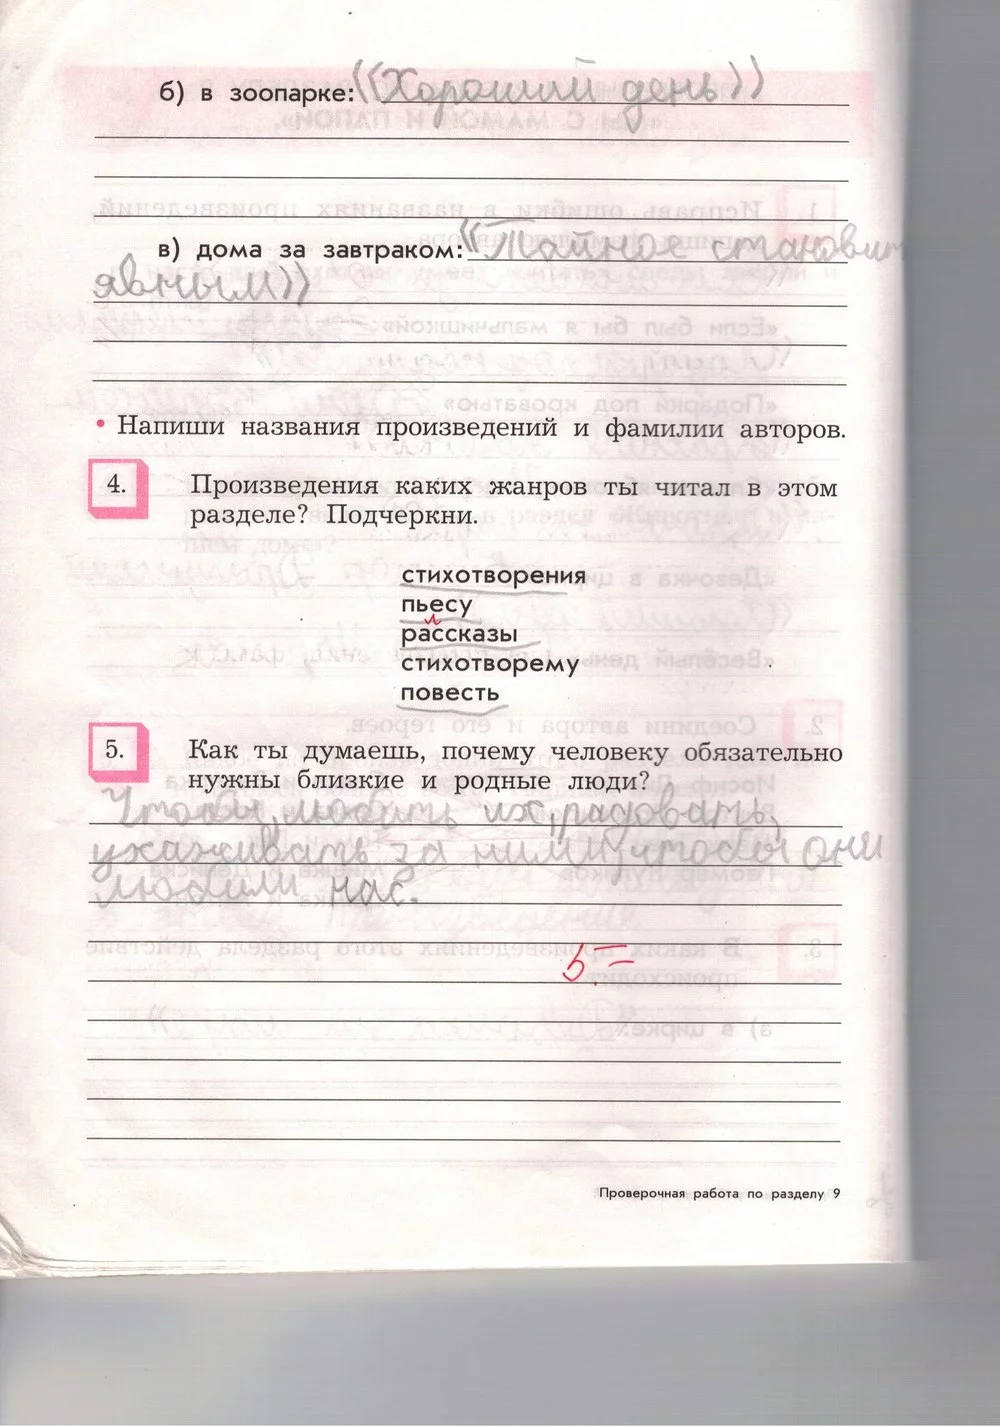 б) в зоопарке: «Хороший день»
в) дома за завтраком: «Тайное становит
явным»
• Напиши названия произведений и фамилии авторов.
4. Произведения каких жанров ты читал в этом
разделе? Подчеркни.
стихотворения
пьесу
рассказы
стихотворему
повесть
5. Как ты думаешь, почему человеку обязательно
нужны близкие и родные люди?
Чтобы любить их, радовать,
ухаживать за ними, чтобы они
любили нас.
5-
Проверочная работа по разделу 9